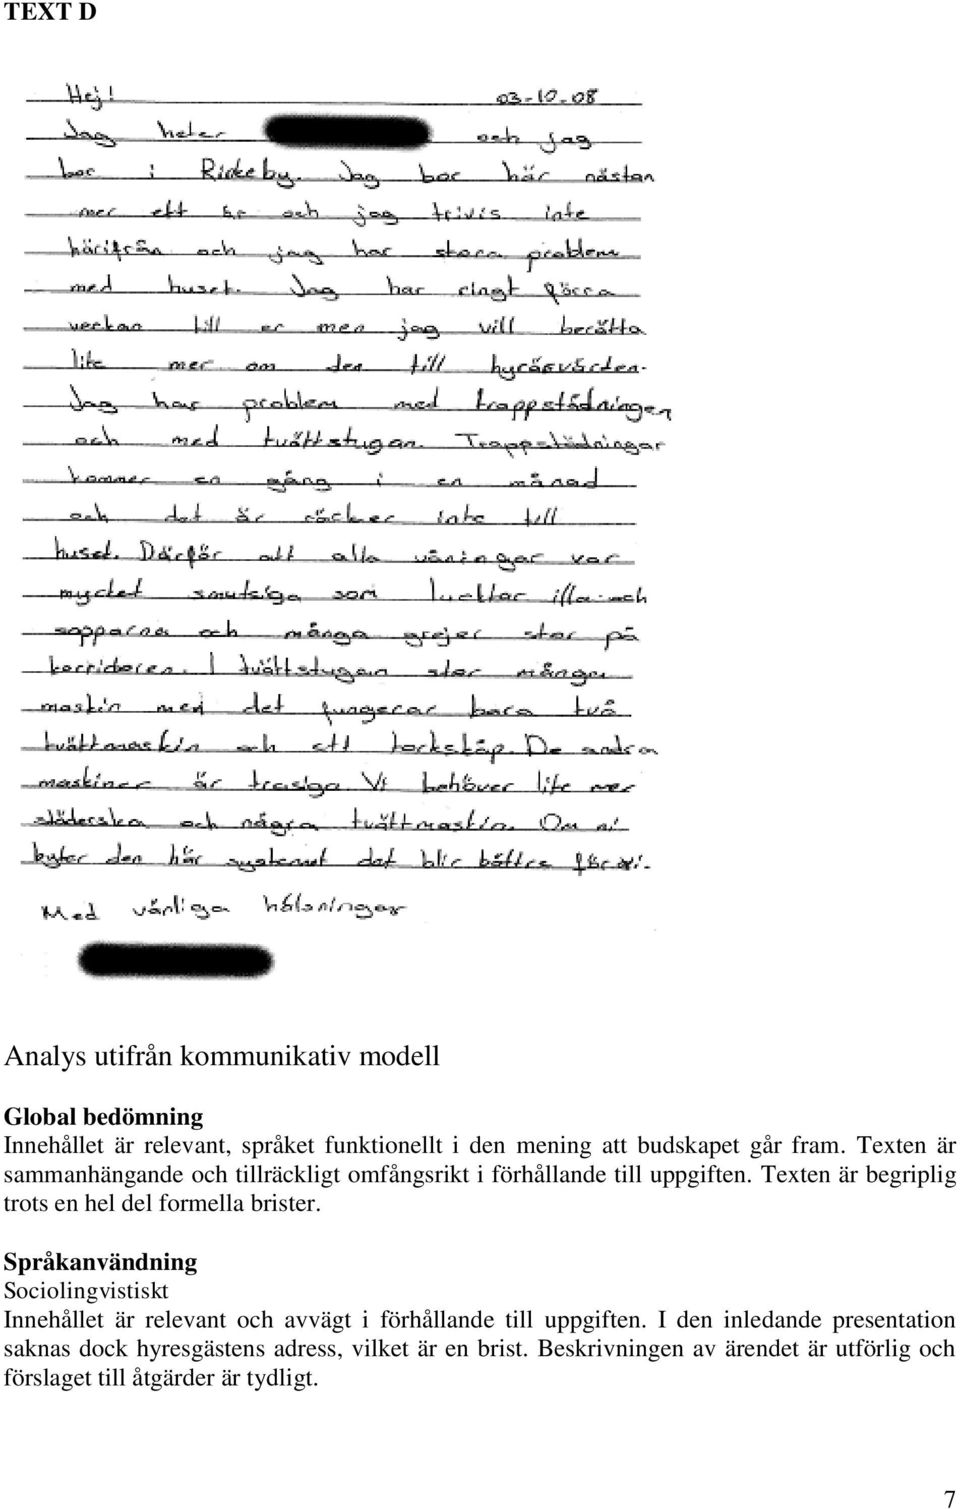 TEXT D
Hej! 03-10-08
Jag heter och jag
bor i Rickeby. Jag bor här nästan
mer ett år och jag trivis inte
härifrån och jag har stora problem
med huset. Jag har ringt förra
veckan till er men jag vill berätta
lite mer om den till hyräsvärden.
Jag har problem med trappstädningen
och med tvättstugan. Trappstädningar
kommer en gång i en månad
och det är räcker inte till
huset. Därför att alla våningar var
mycket smutsiga som lucktar illa och
sopparna och många grejer stor på
korridoren. I tvättstugan stor många
maskin men det fungerar bara två
tvättmaskin och ett torkskåp. De andra
maskiner är trasiga. Vi behöver lite mer
städerska och några tvättmaskin. Om ni
byter den här systemet det blir bättre för vi.
Med vänliga hälsningar
Analys utifrån kommunikativ modell
Global bedömning
Innehållet är relevant, språket funktionellt i den mening att budskapet går fram. Texten är
sammanhängande och tillräckligt omfångsrikt i förhållande till uppgiften. Texten är begriplig
trots en hel del formella brister.
Språkanvändning
Sociolingvistiskt
Innehållet är relevant och avvägt i förhållande till uppgiften. I den inledande presentation
saknas dock hyresgästens adress, vilket är en brist. Beskrivningen av ärendet är utförlig och
förslaget till åtgärder är tydligt.
7